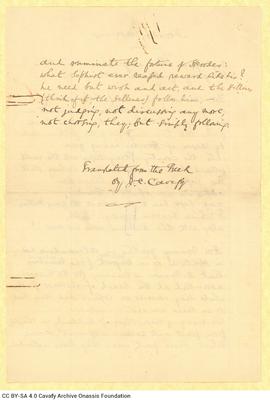 and ruminate the future of Herodes:
what Sophist ever reaped reward like his?
he need but wish and act, and the Hellenes
(think of it the Hellenes) follow him —
not judging, not discussing any more,
not choosing, they, but simply following.
Translated from the Greek
by J. C. Cavafy
CC BY-SA 4.0 Cavafy Archive Onassis Foundation